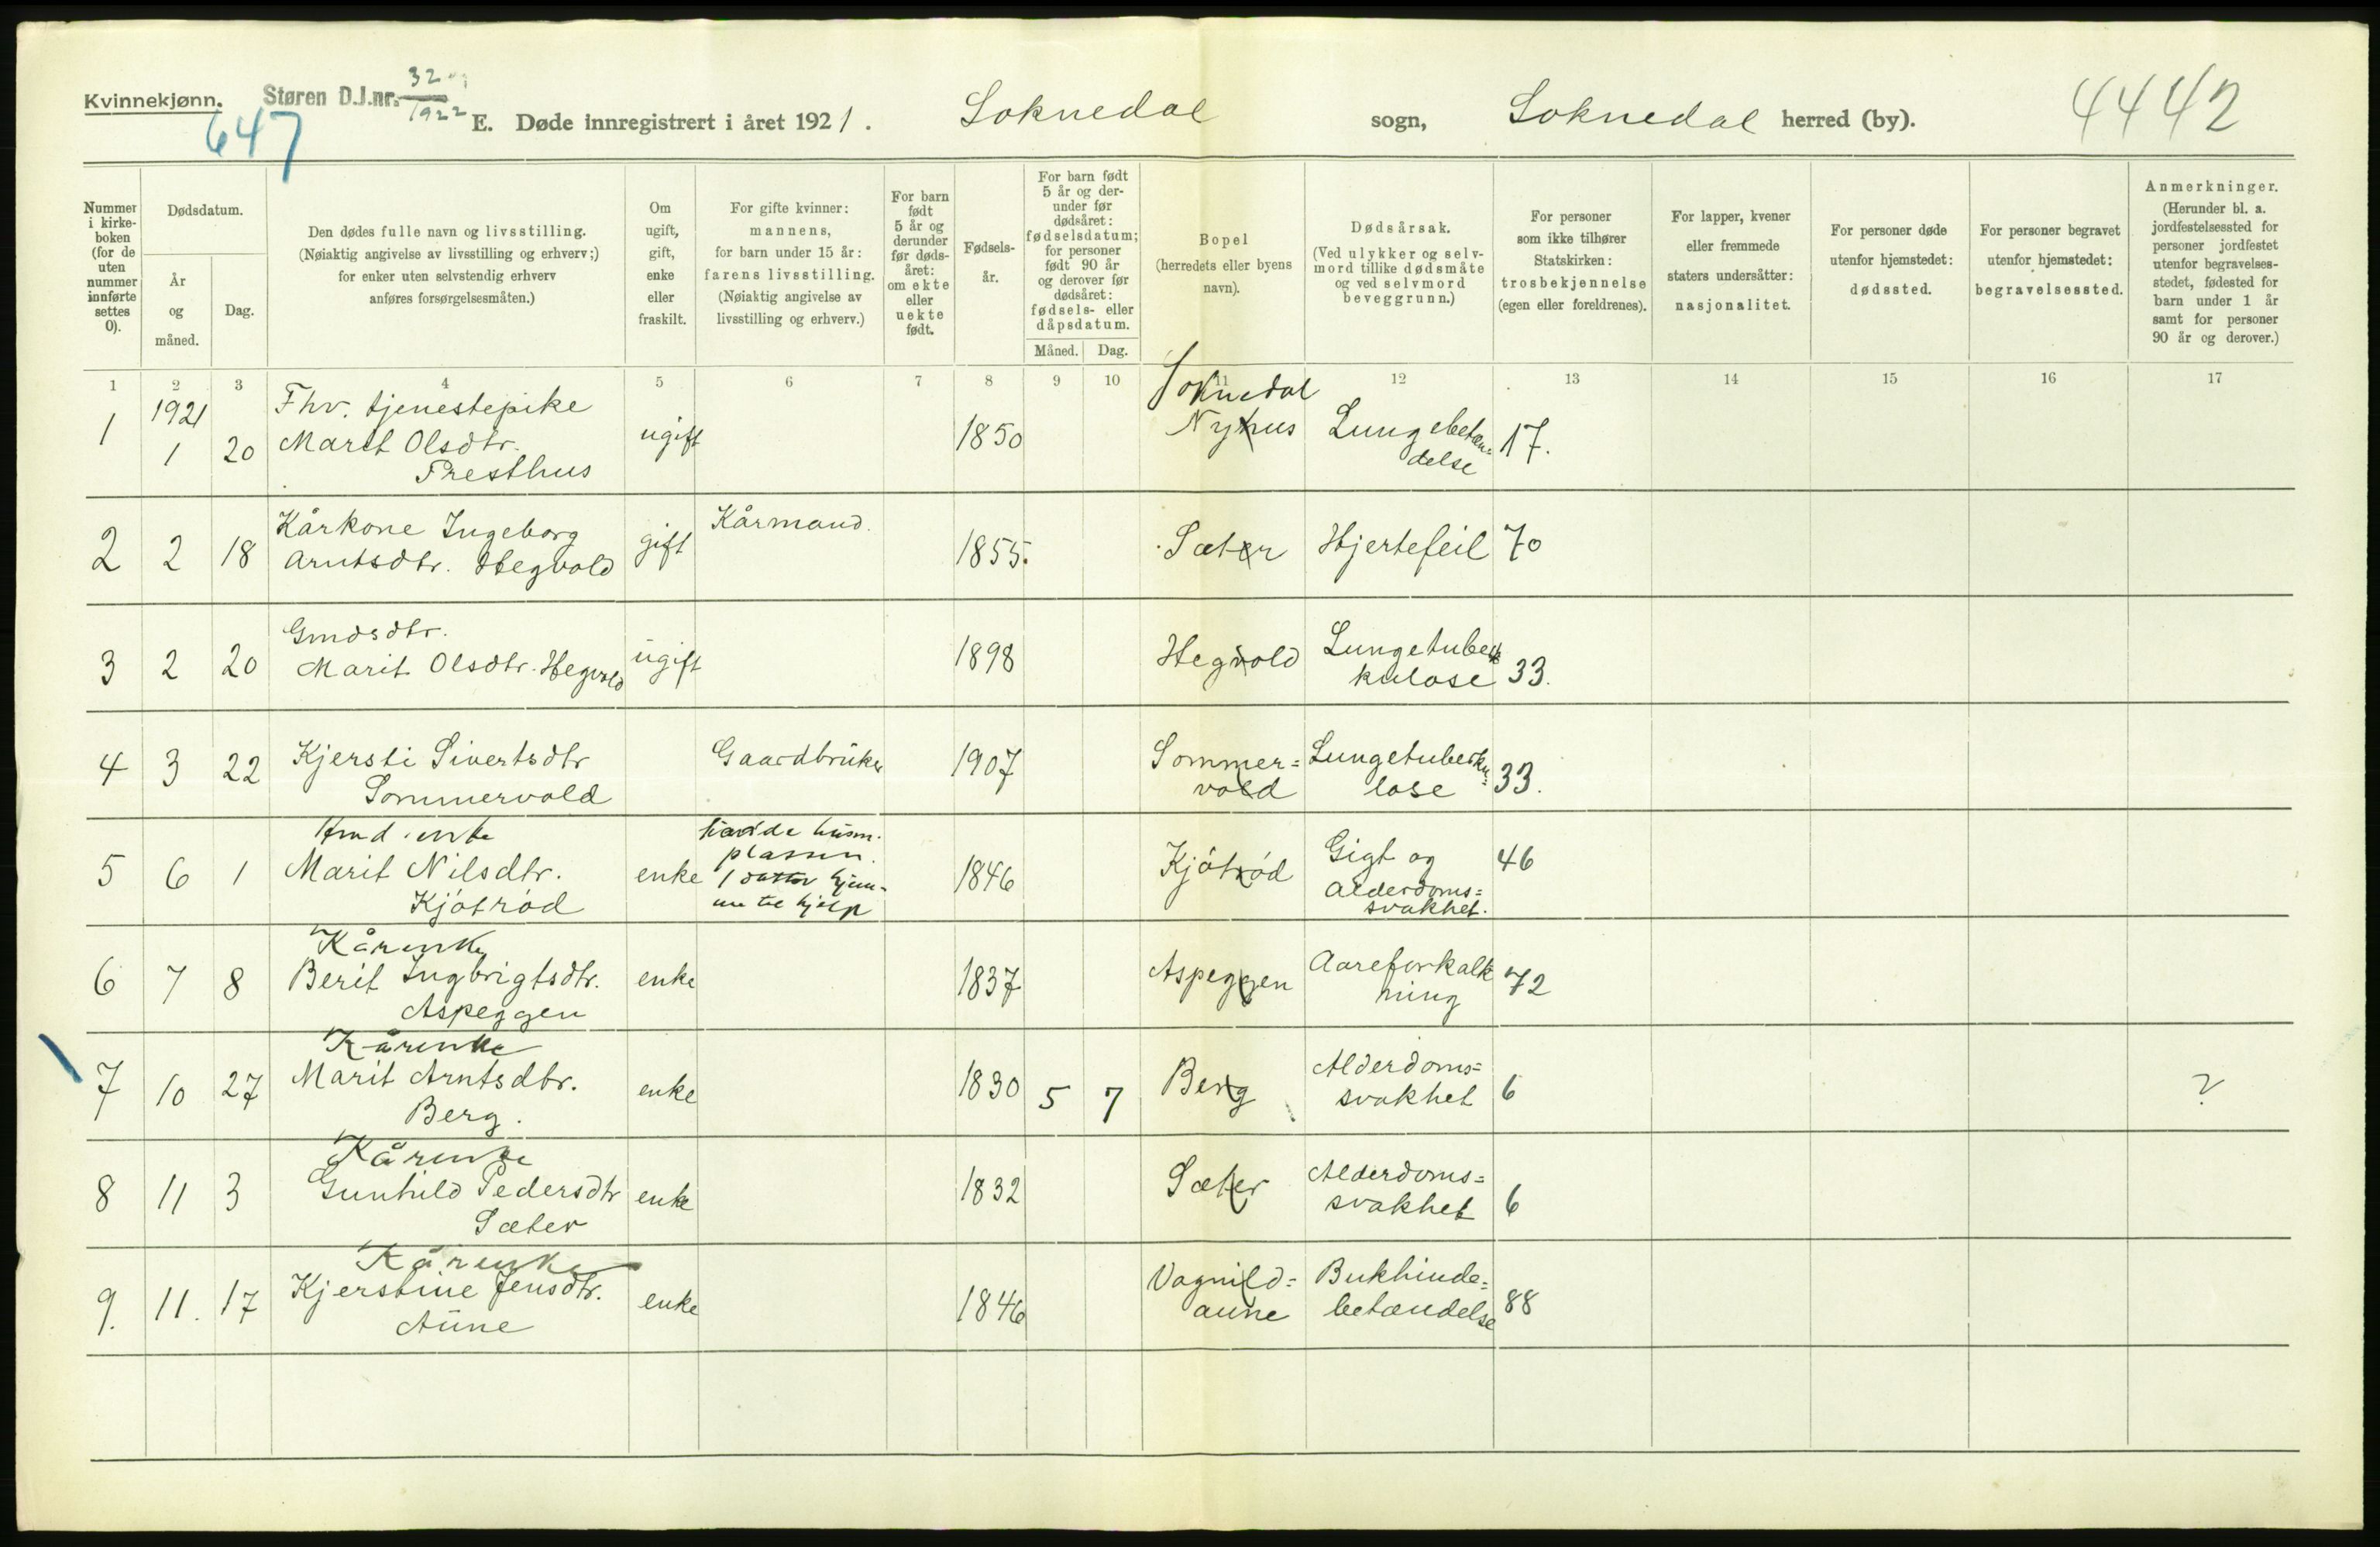 Kvinnekjønn.
Støren D.J.nr. 32
1922
647
E. Døde innregistrert i året 1921.
Soknedal sogn, Soknedal herred (by).
4442
Nummer i kirke-boken (for de uten nummer innførte settes 0).
Dødsdatum.
År og måned.
Dag.
Den dødes fulle navn og livsstilling.
(Nøiaktig angivelse av livsstilling og erhverv;)
for enker uten selvstendig erhverv
anføres forsørgelsesmåten.)
Om ugift, gift, enke eller fraskilt.
For gifte kvinner:
mannens,
for barn under 15 år:
farens livsstilling.
(Nøiaktig angivelse av
livsstilling og erhverv.)
For barn født 5 år og derunder før døds-året: om ekte eller uekte født.
Fødsels-år.
For barn født 5 år og der-under før dødsåret: fødselsdatum; for personer født 90 år og derover før dødsåret: fødsels- eller dåpsdatum.
Måned.
Dag.
Bopel
(herredets eller byens
navn).
Dødsårsak.
(Ved ulykker og selv-
mord tillike dødsmåte
og ved selvmord
beveggrunn.)
For personer
som ikke tilhører
Statskirken:
trosbekjennelse
(egen eller foreldrenes).
For lapper, kvener
eller fremmede
staters undersåtter:
nasjonalitet.
For personer døde
utenfor hjemstedet:
dødssted.
For personer begravet
utenfor hjemstedet:
begravelsessted.
Anmerkninger.
(Herunder bl. a.
jordfestelsessted for
personer jordfestet
utenfor begravelses-
stedet, fødested for
barn under 1 år
samt for personer
90 år og derover.)
1 2 3 4 5 6 7 8 9 10 11 12 13 14 15 16 17
1921 Fhv. tjenestepike Soknedal
1 1 20 Marit Olsdtr. ugift 1850 Nyhus Lungebetæn= 17.
Presthus delse
Kårkone Ingeborg Kårmand.
2 2 18 Arntsdtr. Hegvold gift 1855. Sæter Hjertefeil 70
Gmdsdtr.
3 2 20 Marit Olsdtr. Hegvold ugift 1898 Hegvold Lungetuber
kulose 33.
4 3 22 Kjersti Sivertsdtr Gaardbruker 1907 Sommer= Lungetuberku= 33.
Sommervold vold lose
enke havde husm.
plassen.
5 6 1 Marit Nilsdtr. enke 1 datter hjem- 1846 Kjötröd Gigt og 46
Kjötröd me til hjelp Alderdoms=
svakhet.
Kårenke
6 7 8 Berit Ingbrigtsdtr. enke 1837 Aspeggen Aareforkalk 72
Aspeggen ning
Kårenke
7 10 27 Marit Arntsdtr. enke 1830 5 7 Berg Alderdoms= 6 ?
Berg. svakhet
Kårenke
8 11 3 Gunhild Pedersdtr enke 1832 Sæter Alderdoms= 6
Sæter svakhet
Kårenke
9. 11. 17 Kjerstine Jensdtr. enke 1846 Vagnild= Bukhinde= 88
Aune aune betændelse